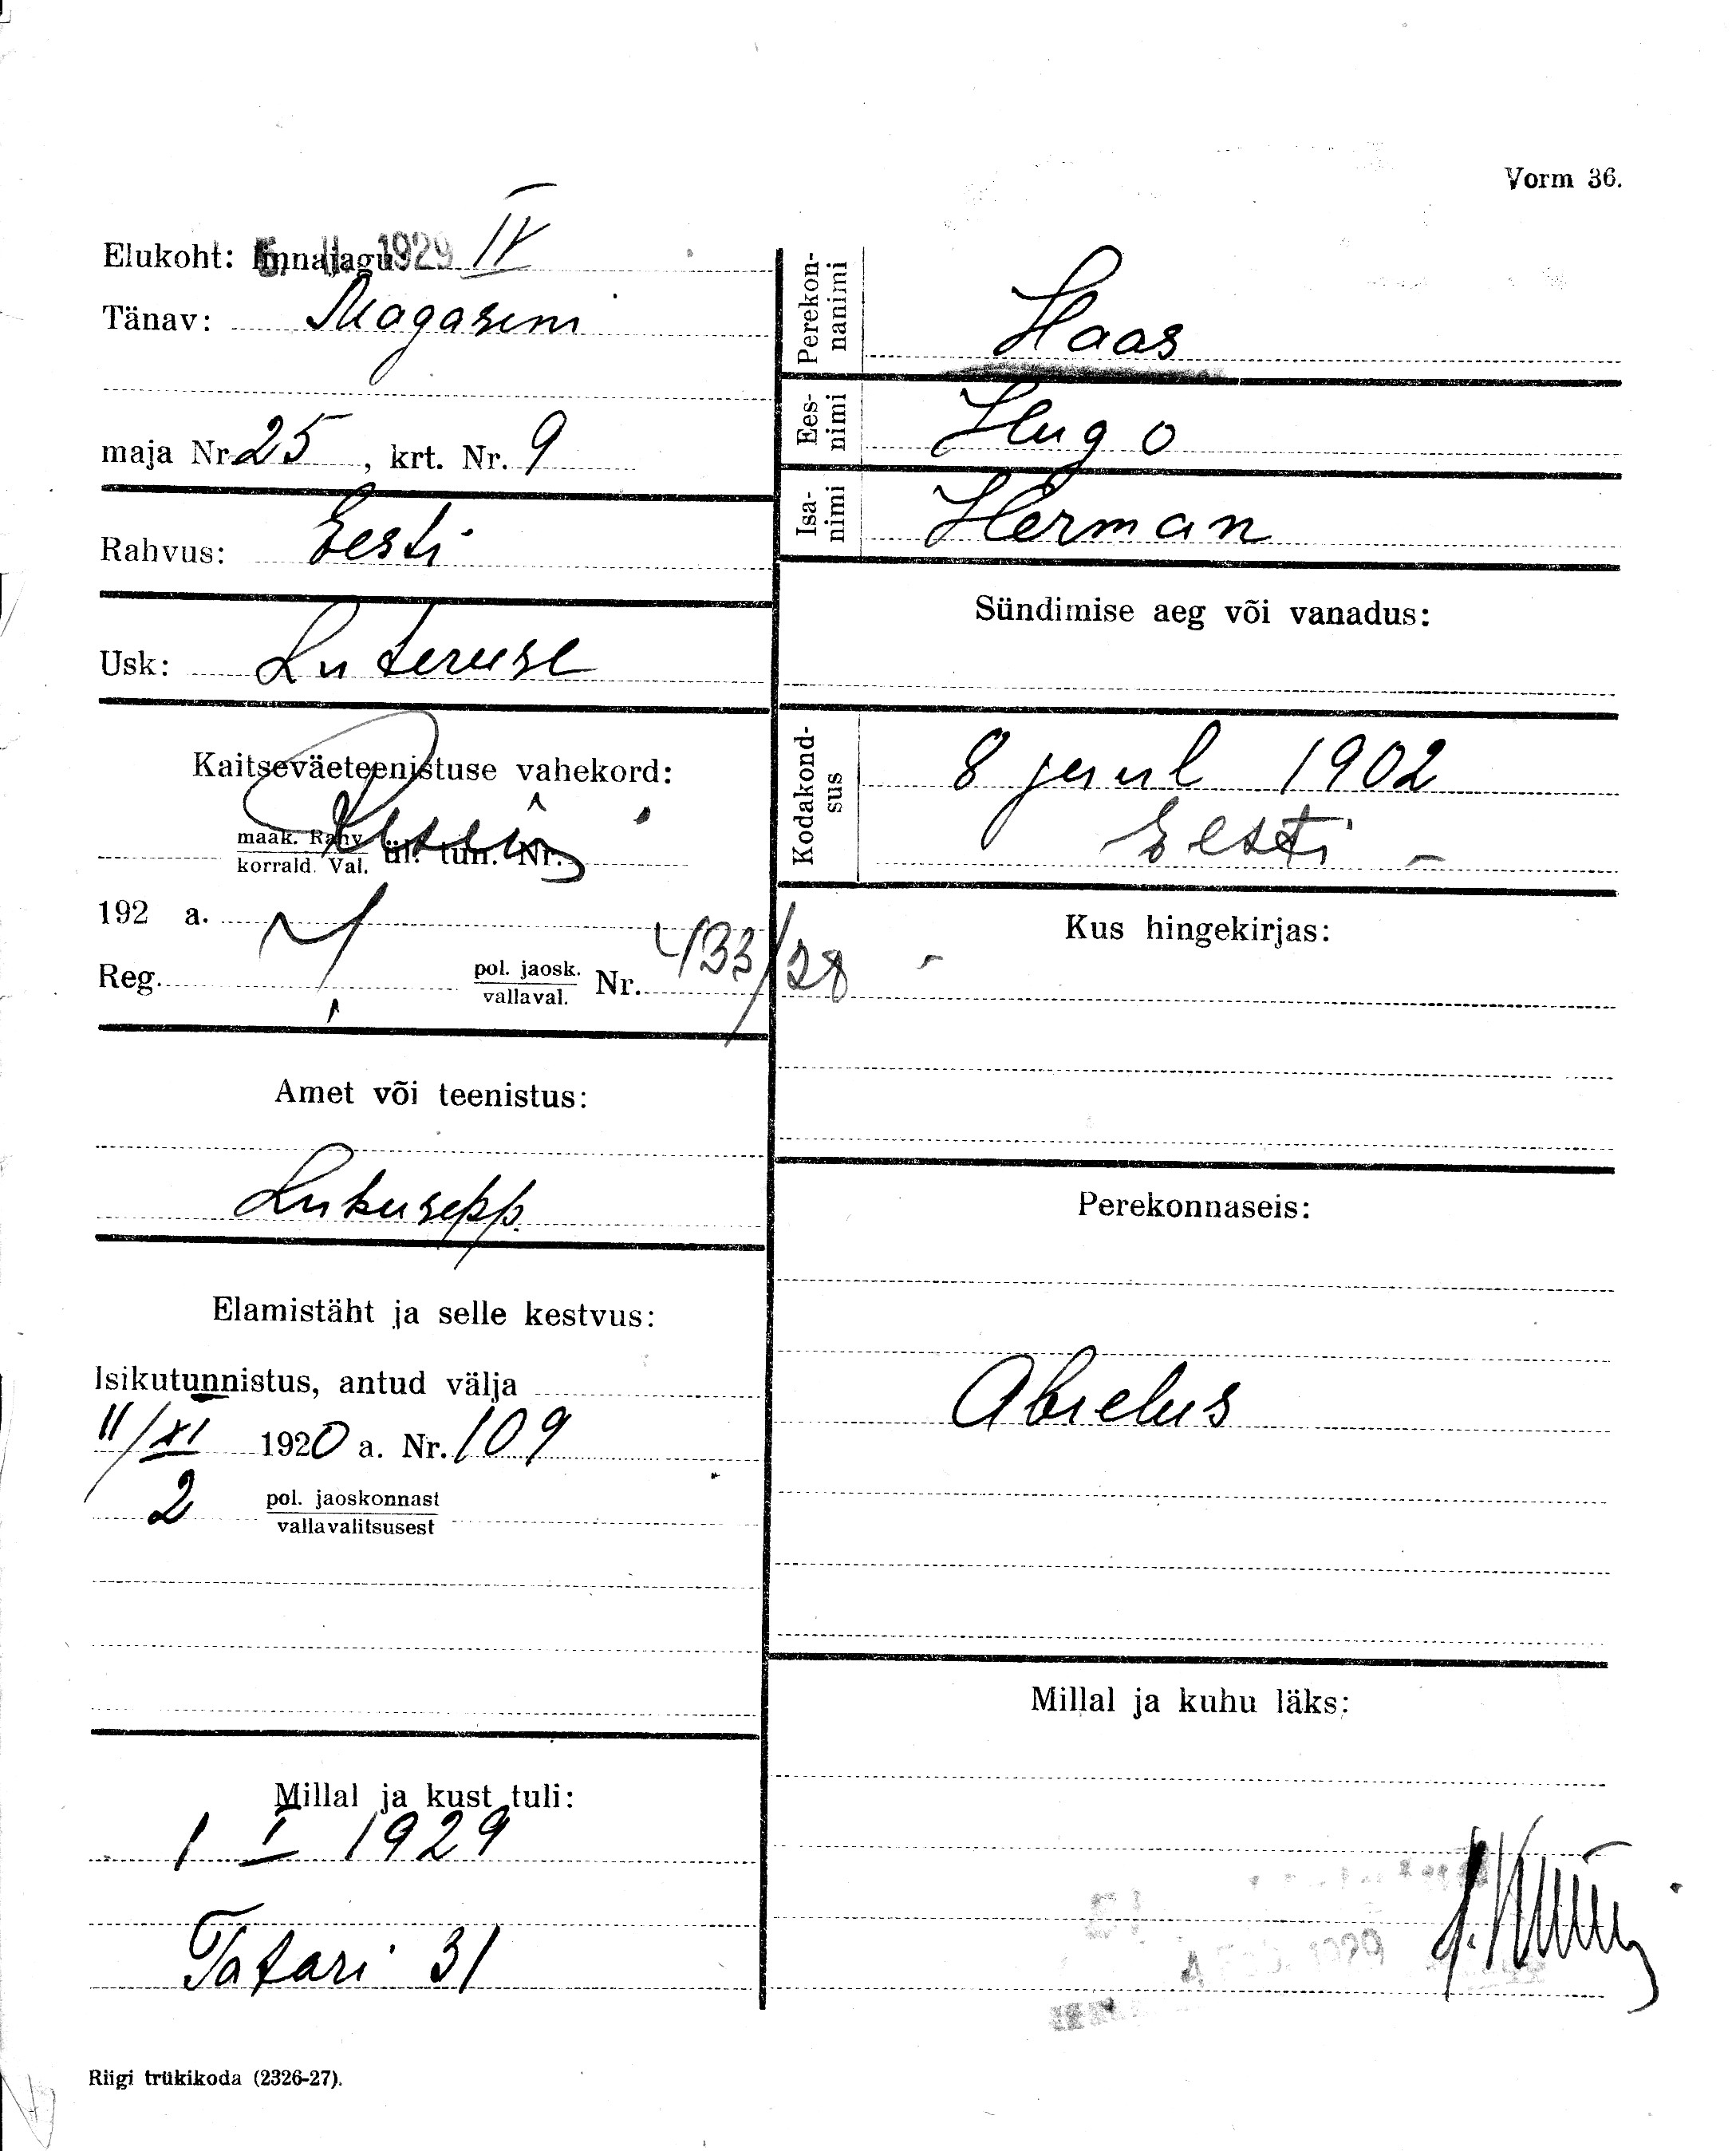 Vorm 36.
Elukoht: linnajagu IV
1929
Tänav: Magasini
maja Nr. 25, krt. Nr. 9
Rahvus: Eesti
Usk: Luteruse
Kaitseväeteenistuse vahekord:
maak. Rahv.
korrald. Val. ül. tun. Nr.
192 a.
Reg. pol. jaosk.
vallaval. Nr. 433/28
Amet või teenistus:
Lukusepp.
Elamistäht ja selle kestvus:
Isikutunnistus, antud välja
11/XI 1920 a. Nr. 109
2 pol. jaoskonnast
vallavalitsusest
Millal ja kust tuli:
1 I 1929
Tatari 31
Riigi trükikoda (2326-27).
Perekon-
nanimi
Haas
Ees-
nimi
Hugo
Isa-
nimi
Herman
Sündimise aeg või vanadus:
Kodakond-
sus
8 1902
Eesti -
Kus hingekirjas:
Perekonnaseis:
Abielus
Millal ja kuhu läks:
1929